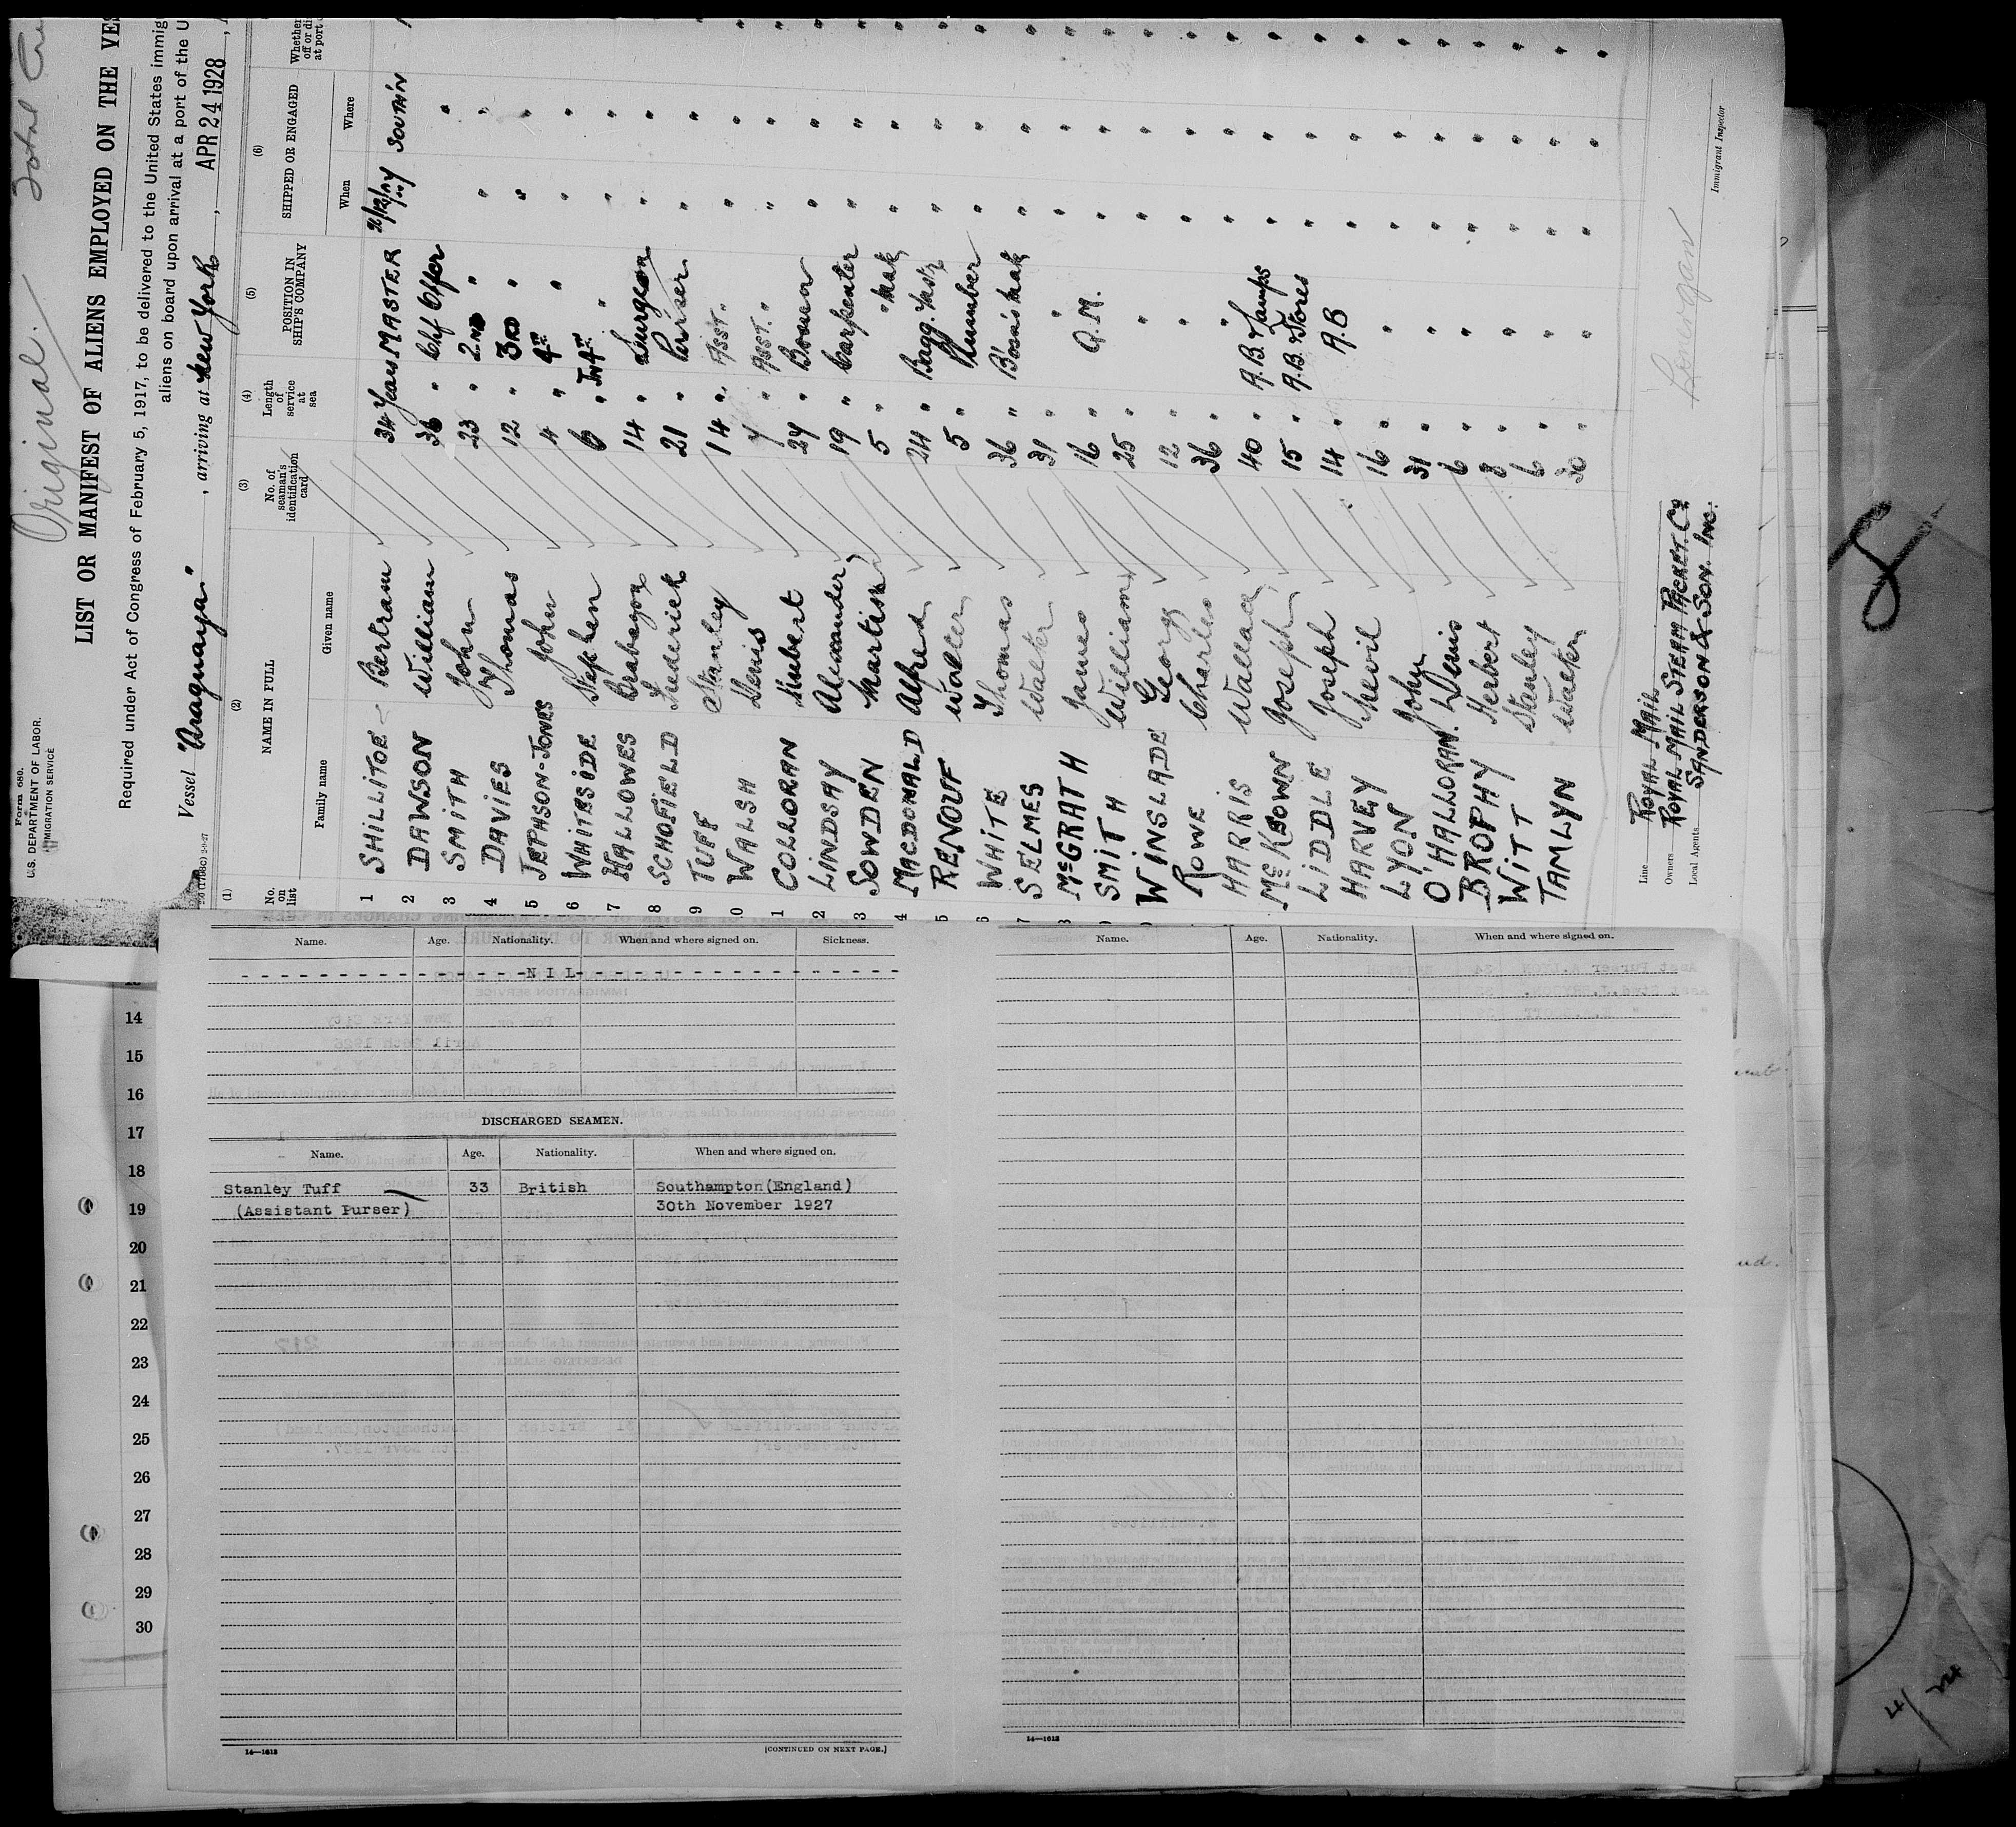 Original.
Total
Form 680.
U.S. DEPARTMENT OF LABOR.
IMMIGRATION SERVICE
LIST OR MANIFEST OF ALIENS EMPLOYED ON THE VES
Required under Act of Congress of February 5, 1917, to be delivered to the United States immig
aliens on board upon arrival at a port of the U
Vessel "Araguaya" , arriving at New York , APR 24 1928
(1) (2) (3) (4) (5) (6)
No. on list NAME IN FULL No. of seaman's identification card Length of service at sea POSITION IN SHIP'S COMPANY SHIPPED OR ENGAGED Whether
Family name Given name When Where
1 SHILLITOE Bertram 34 Years MASTER SOUTH'N
2 DAWSON William 36 " Chf Offer "
3 SMITH John 23 " 2ND " " "
4 DAVIES Thomas 12 " 3RD " " "
5 JEPHSON-JONES John 4 " 4TH " " "
6 WHITESIDE Stephen 6 " Jnr 4TH " " "
7 HALLOWES Brabazon 14 " Surgeon " "
8 SCHOFIELD Frederick 21 " Purser " "
9 TUFF Stanley 14 " ASST. " " "
0 WALSH Denis 7 " ASST. " " "
1 COLLORAN Hubert 27 " Bosun " "
2 LINDSAY Alexander 19 " Carpenter " "
3 SOWDEN Martin 5 " " Mate " "
4 MACDONALD Alfred 24 " Bagg. Mastr " "
5 RENOUF Walter 5 " Plumber " "
6 WHITE Thomas 36 " Bosins Mate " "
7 SELMES Walter 31 " " " "
8 McGRATH James 16 " Q.M. " "
9 SMITH William 25 " " " "
WINSLADE George 12 " " " "
ROWE Charles 36 " " " "
HARRIS Wallace 40 " A.B. & Lamps " "
McKEOWN Joseph 15 " A.B. & Stores " "
LIDDLE Joseph 14 " A.B " "
HARVEY Nevil 16 " " " "
LYON John 31 " " " "
O'HALLORAN. Denis 6 " " " "
BROPHY Herbert 8 " " " "
WITT Stanley 6 " " " "
TAMLYN Walter 30 " " " "
Line ROYAL MAIL
Owners ROYAL MAIL STEAM PACKET Co
Local Agents SANDERSON & SON. INC.
Lonergan
Immigrant Inspector
8
Name. Age. Nationality. When and where signed on. Sickness.
- - - - - - - - - - - - - - -N I L- - - - - - - - - - - - - - - - -
DISCHARGED SEAMEN.
Name. Age. Nationality. When and where signed on.
Stanley Tuff 33 British Southampton(England)
(Assistant Purser) 30th November 1927
14—1613
[CONTINUED ON NEXT PAGE.]
Name. Age. Nationality. When and where signed on.
14—1613
14
15
16
17
18
19
20
21
22
23
24
25
26
27
28
29
30